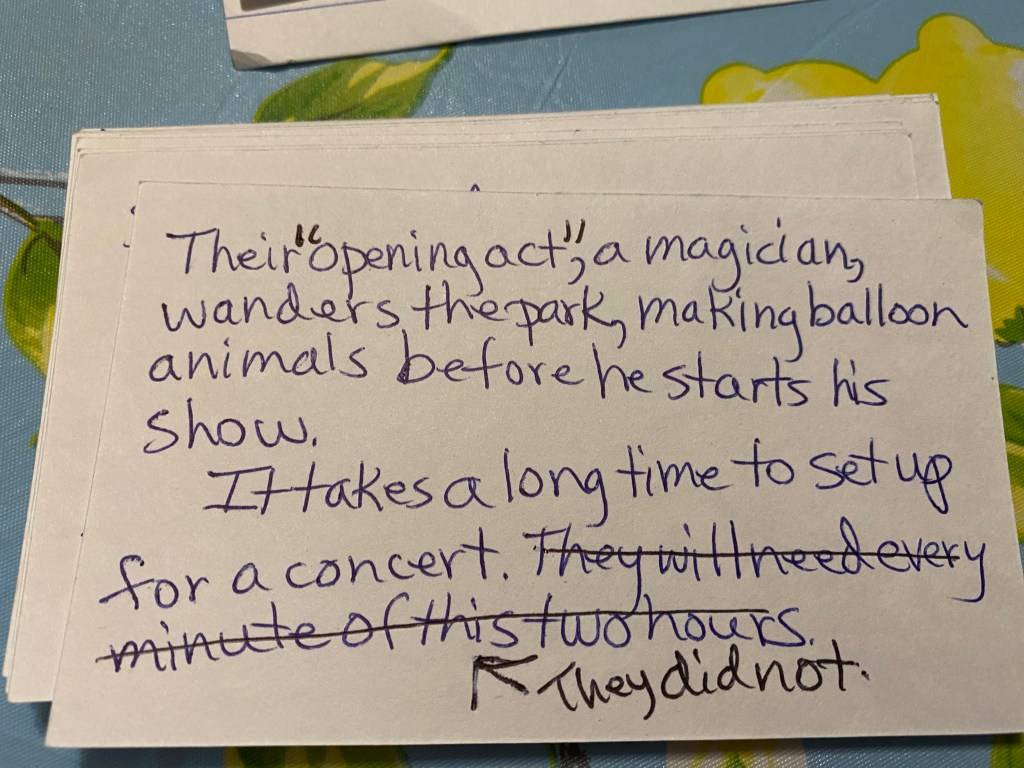 Their "opening act", a magician,
wanders the park, making balloon
animals before he starts his
show.
It takes a long time to set up
for a concert. They will need every
minute of this two hours.
They did not.